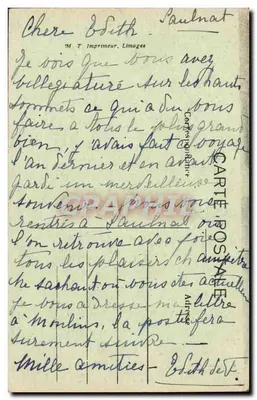 Saulnat
Chere Edith.
M. T. Imprimeur, Limoges
Je vois que vous avez
villegiaturé sur les hauts
sommets ce qui a du vous
faire a tous le plus grand
bien, j'avais fait ce voyage
l'an dernier et en avait
gardé un merveilleux
souvenir. Vous vois
rentrés a Saulnat ou
l'on retrouve avec joie
tous les plaisirs champetre
Ne sachant ou vous etes actuellem
je vous adresse ma lettre
à Moulins, la poste fera
surement suivre
Mille amities - Edith de F.
CARTE POSTALE
Correspondance
Adresse